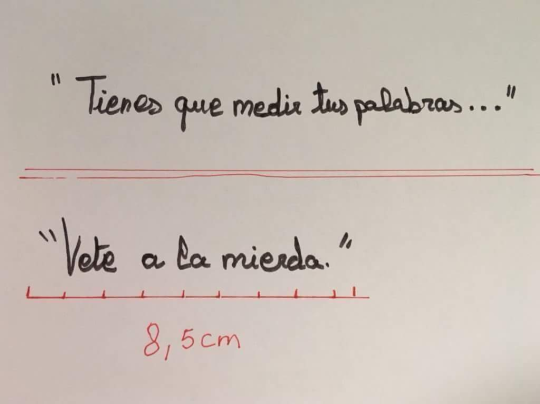 "Tienes que medir tus palabras..."
"Vete a la mierda."
8,5cm